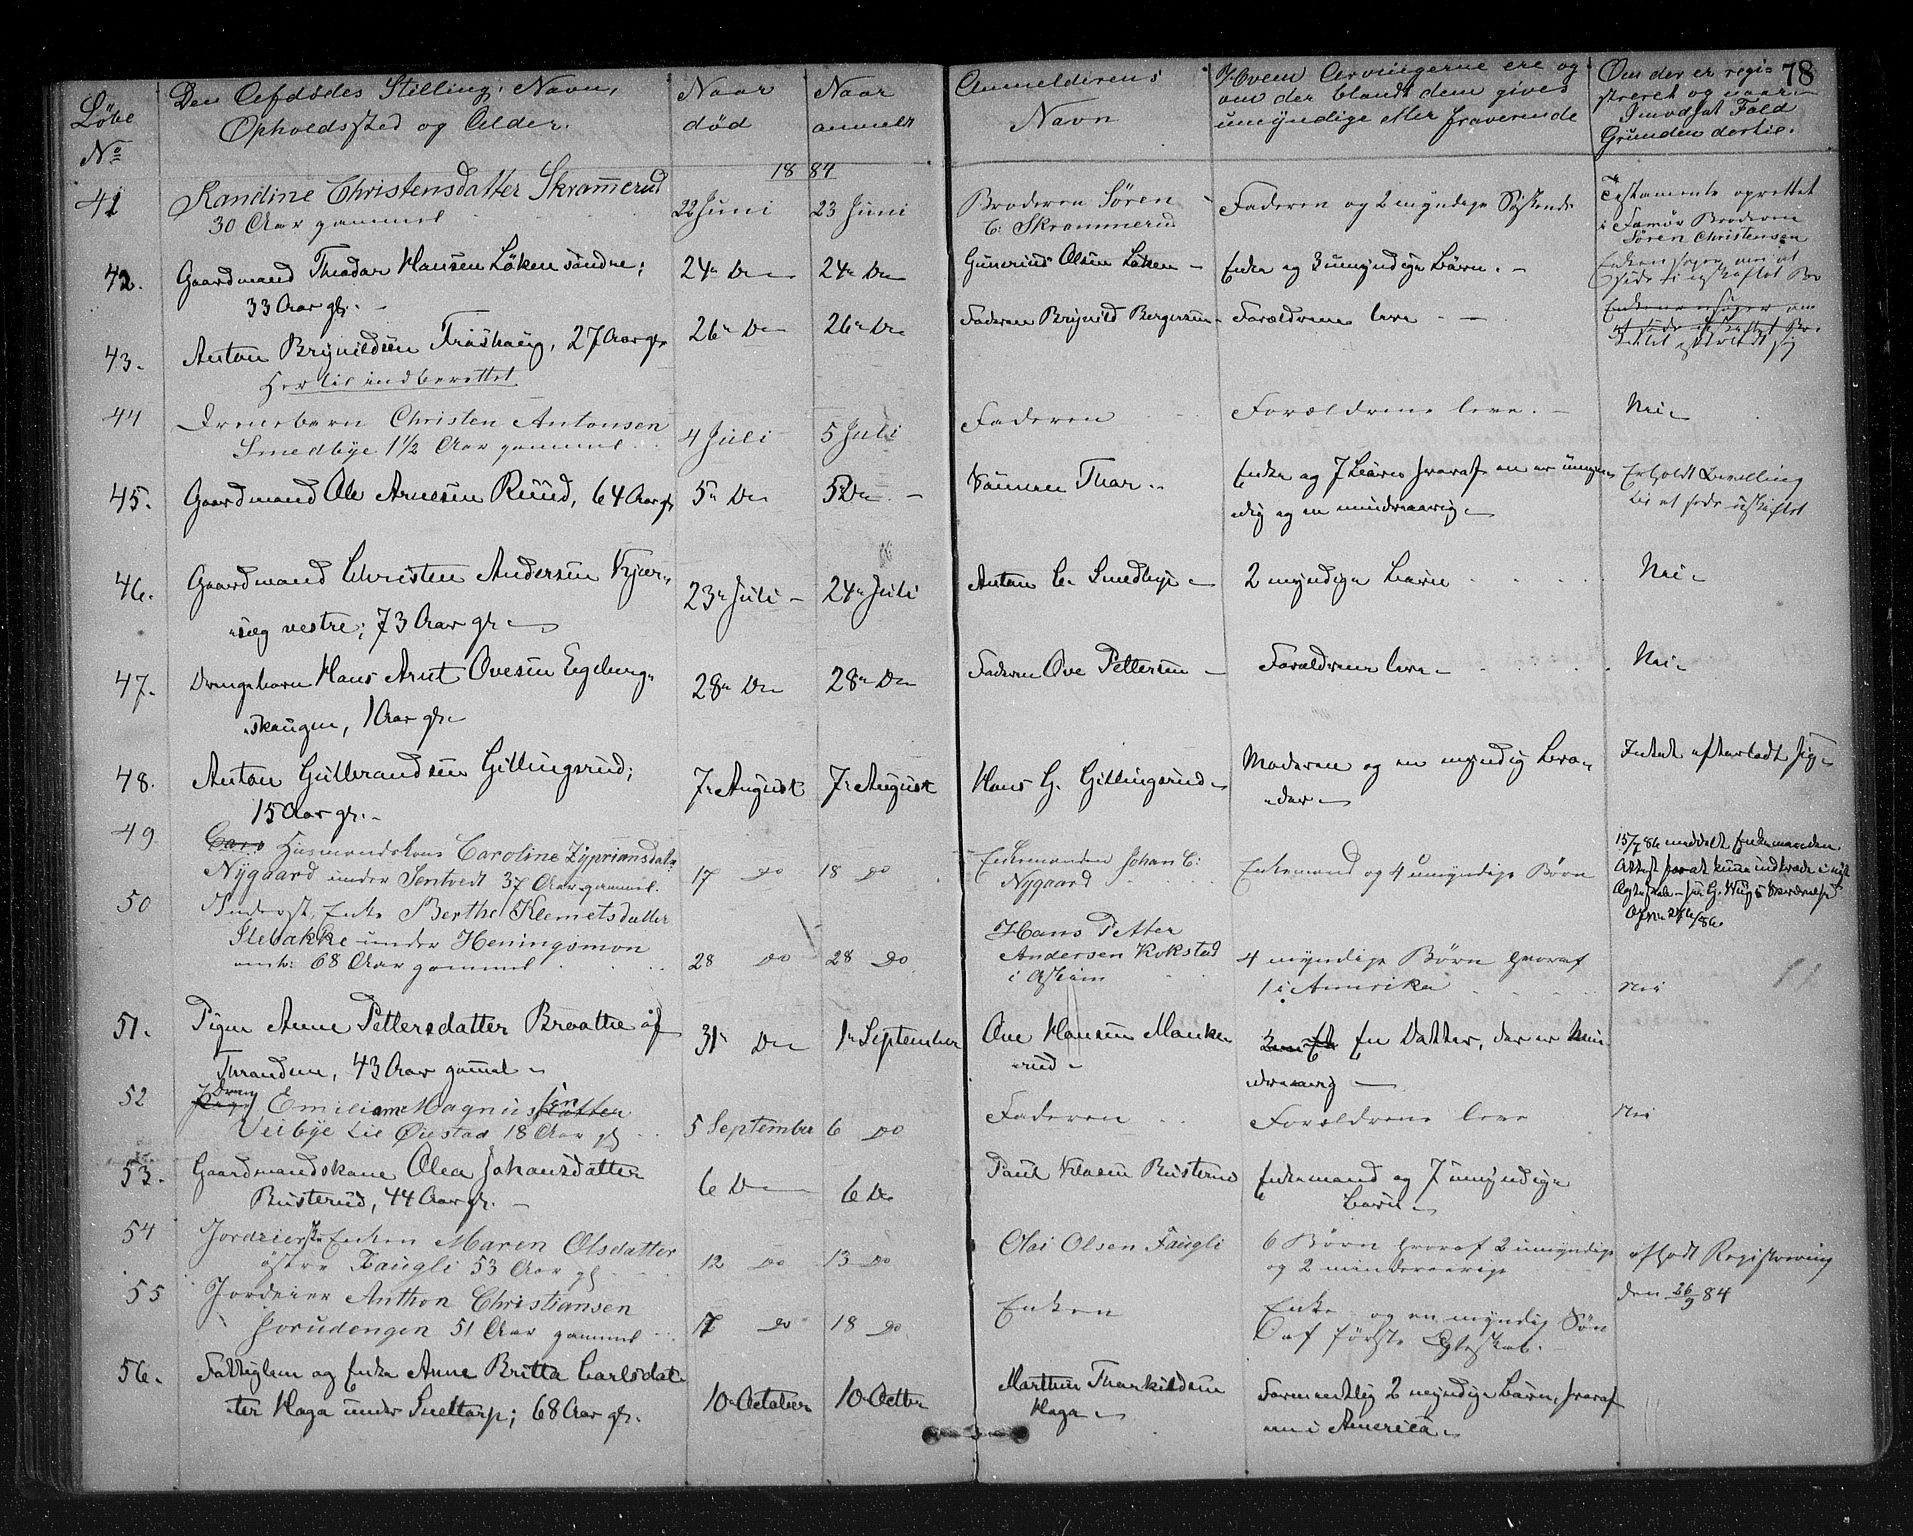 78
Løbe
No
Den Afdødes Stilling, Navn,
Opholdssted og Alder.
Naar
død
Naar
anmeldt
Anmelderens
Navn
Hvem Arvingerne ere og
om der blandt dem gives
umyndige eller fraværende
Om der er regi-
streret og i
modsat Fald
Grunden dertil.
1884
41
Randine Christensdatter Skrammerud
30 Aar gammel
22 Juni
23 Juni
Broderen Søren
C. Skrammerud
Faderen og 2 myndige Søskende
Testamente oprettet
i Favør Broderen
Søren Christensen
42.
Gaardmand Theodor Hansen Løken søndre;
33 Aar gl.
24de Do
24de Do
Gunerius Olsen Løken
Enke og 3 umyndige Børn.
43.
Anton Brynildsen Traashaug, 27 Aar gl.
Her til indberettet
26de Do
26de Do
Faderen Brynild Bergersen
Forældrene leve
44
Drenebarn Christen Antonsen
Smedbye 1½ Aar gammel
4 Juli
5 Juli
Faderen
Forældrene leve.
Nei
45.
Gaardmand Ole Arnesen Ruud, 64 Aar gl.
5te Do
5 Do
Sønnen Thor.
Enke og 7 Børn hvoraf en er umyn-
dig og en mindreaarig
Erholdt Bevilling
til at sidde uskiftet
46.
Gaardmand Christen Andersen Kjær-
sæg vestre; 73 Aar gl.
23de Juli
24de Juli
Anton C. Smedbye
2 myndige Børn
Nei
47.
Drengebarn Hans Arnt Ovesen Egeberg-
skaugen, 1 Aar gl.
28de Do
28de Do
Faderen Ove Pettersen
Forældrene leve
Nei
48.
Anton Gulbrandsen Gillingsrud;
15 Aar gl.
7de August
7de August
Hans G. Gillingsrud
Moderen og en myndig Bro-
der
Intet efterladt sig
49
Husmandskone Caroline Zypriansdatter
Nygaard under Sentvedt 37 Aar gammel.
17 do
18 do
Enkemanden Johan C.
Nygaard
Enkemand og 4 umyndige Børn
15/7 86 meddelt Enkemanden
Attest for at kune indtræde i nyt
Ægteskab
50
Inderst, Enke Berthe Klemetsdatter
Stebakke under Heningsmon
omtr. 68 Aar gammel
28 do
28 do
Hans Petter
Andersen Kokstad
i Askim
4 myndige Børn hvoraf
1 i Amerika
Nei
51.
Pigen Anne Pettersdatter Braathe af
Thrandem, 43 Aar gammel
31te Do
1te September
Ove Hansen Manke-
rud
En Datter, der er min-
dreaarig
52
Dreng Emil Magnussen
Veibye til Øiestad 18 Aar gl.
5 September
6 do
Faderen
Forældrene leve
Nei
53.
Gaardmandskone Olea Johansdatter
Busterud, 44 Aar gl.
6 Do
6 Do
Paul Klasen Busterud
Enkemand og 7 umyndige
Børn
54
Jordeierske Enken Maren Olsdatter
østre Faugli 53 Aar gl
12 do
13 do
Olai Olsen Faugli
6 Børn hvoraf 2 umyndige
og 2 mindreaarige
afholdt Registrering
den 26/9 84
55
Jordeier Anthon Christiansen
Jorudengen 51 Aar gammel
17 do
18 do
Enken
Enke og en myndig Søn
af første Ægteskab.
56.
Fattiglem og Enke Anne Britta Carlsdat-
ter Haga under Sneltorp; 68 Aar gl.
10 October
10 Octbr
Marthin Thorkildsen
Haga
Formentlig 2 myndige Børn, hvoraf
en i America